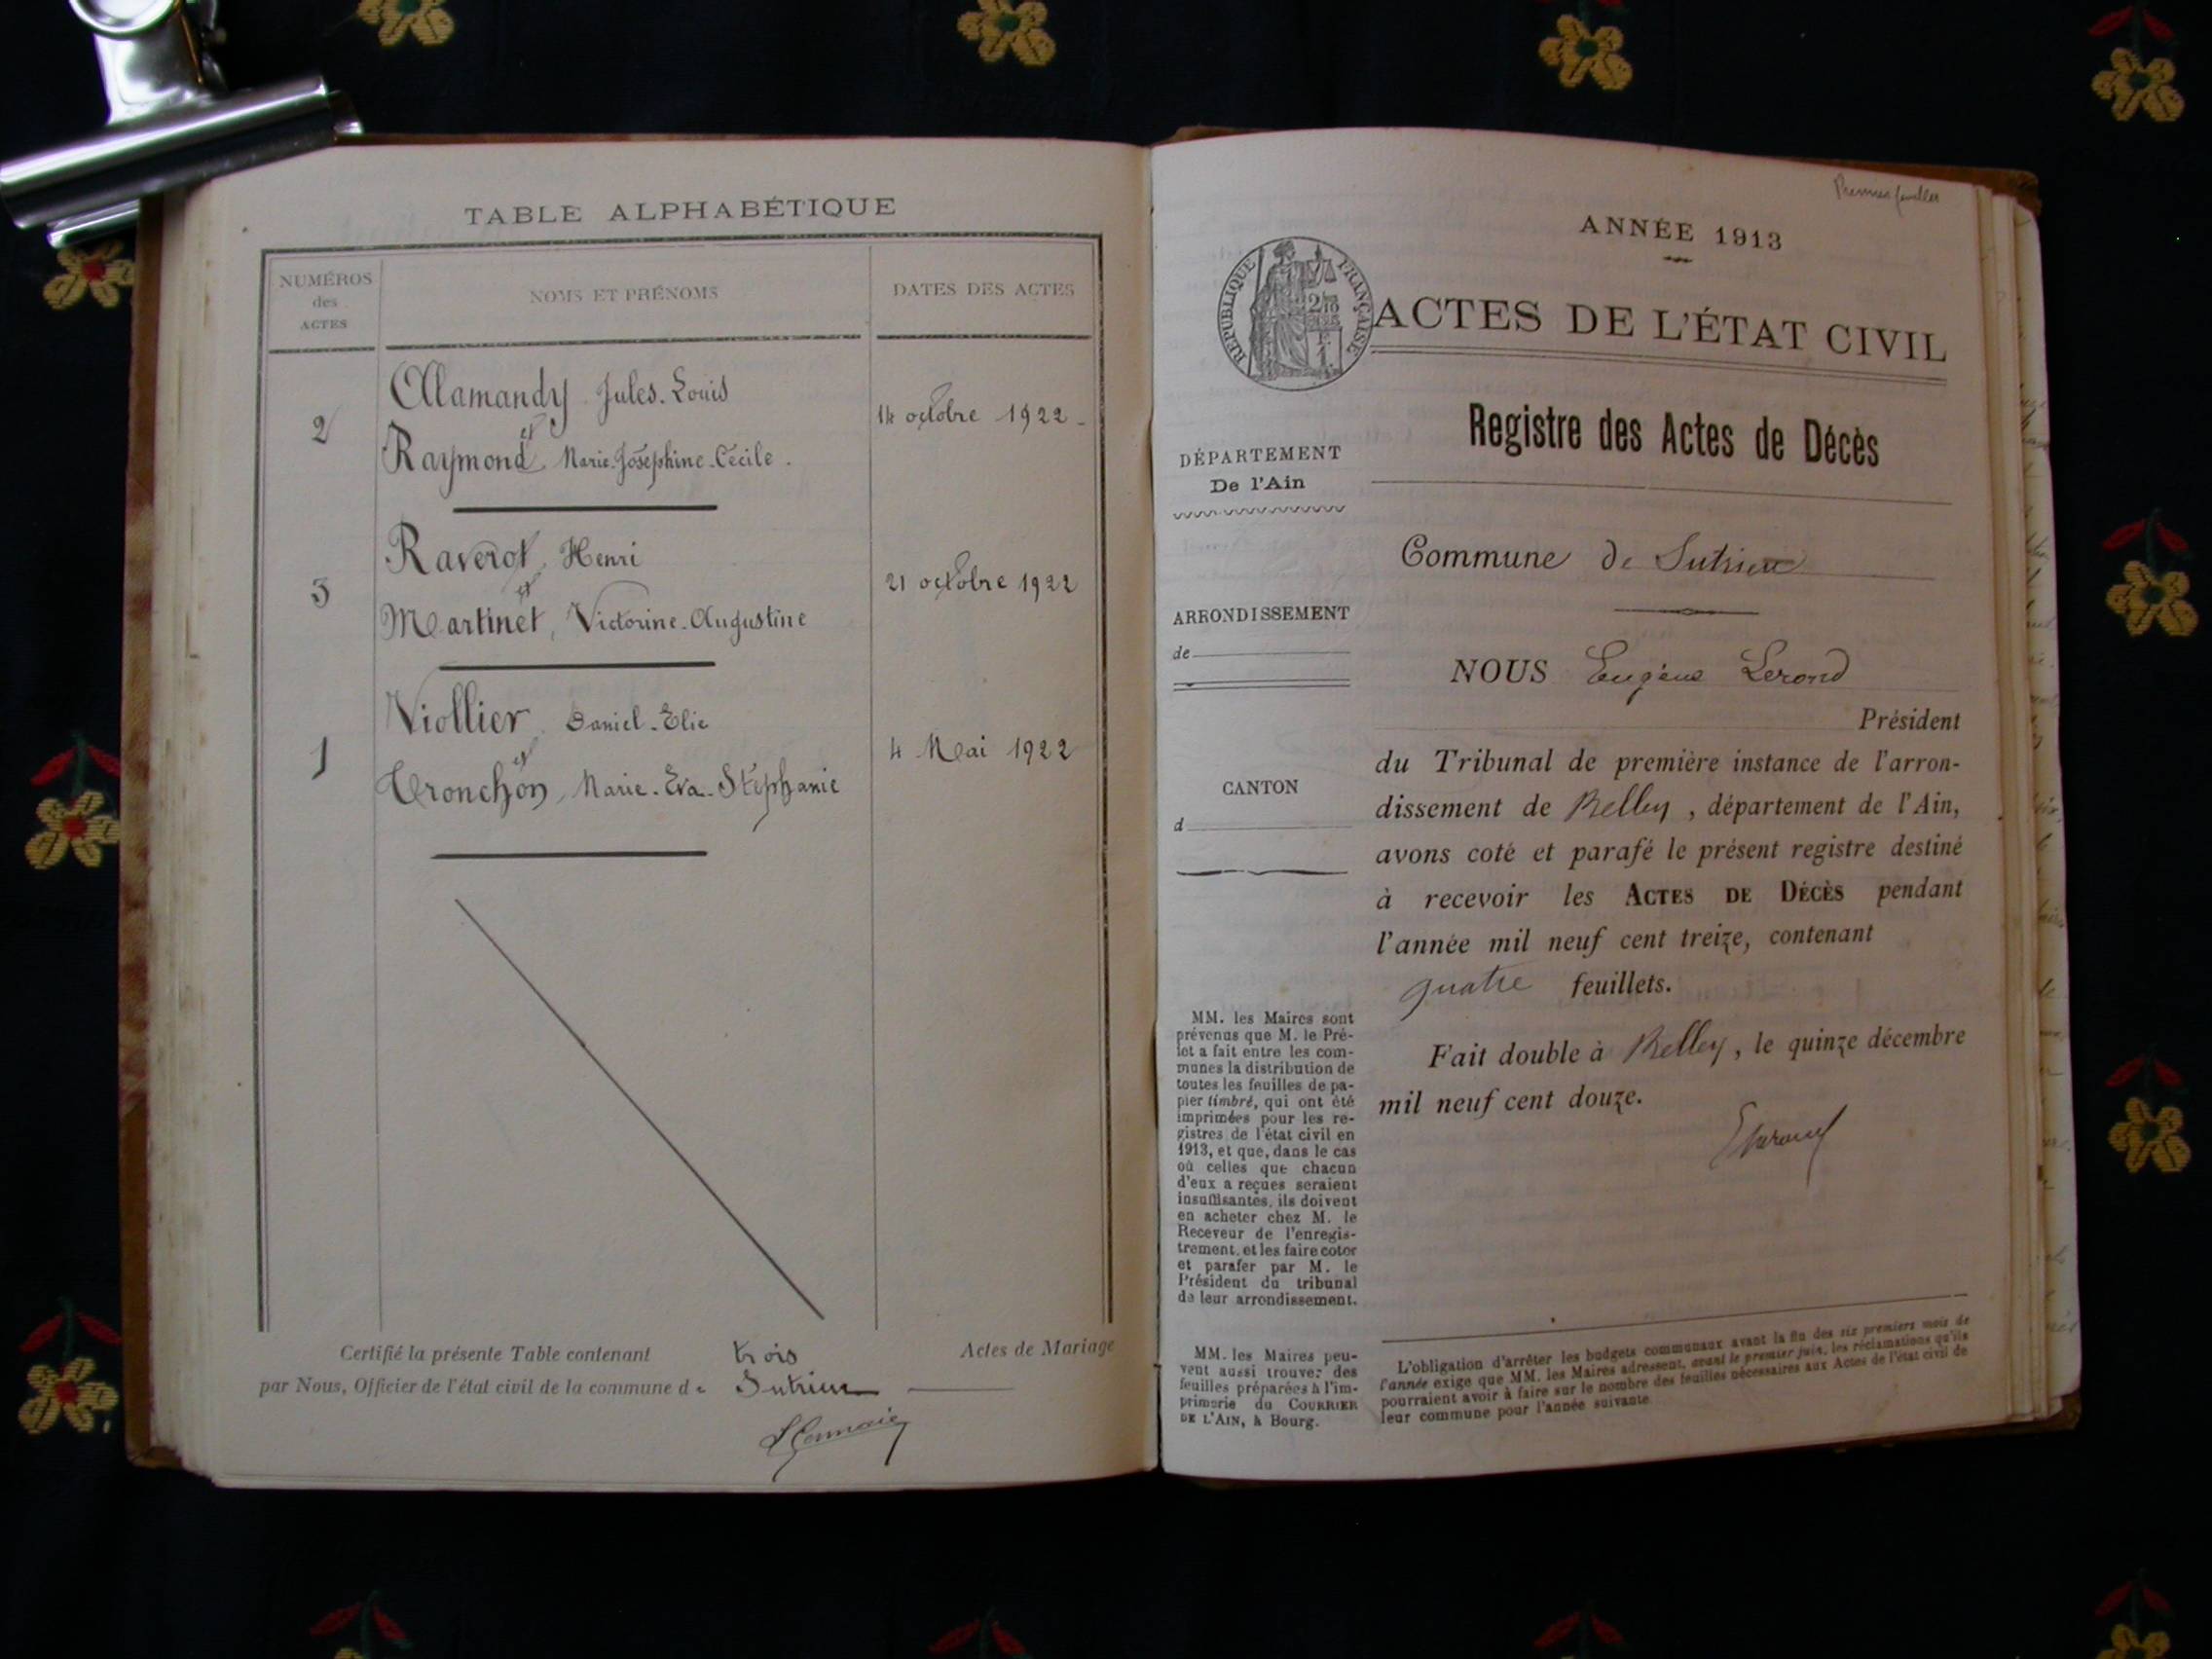 TABLE ALPHABÉTIQUE
NUMÉROS
des
ACTES
NOMS ET PRÉNOMS
DATES DES ACTES
Allamandy Jules-Louis
2
et
14 octobre 1922
Raymond Marie-Joséphine-Cécile.
Raverot, Henri
3
et
21 octobre 1922
Martinet, Victorine-Augustine
Viollier Daniel-Elie
1
et
4 Mai 1922
Tronchon, Marie-Eva-Stéphanie
Certifié la présente Table contenant trois Actes de Mariage
par Nous, Officier de l'état civil de la commune de Sutrieu
Premier feuillet
ANNÉE 1913
RÉPUBLIQUE FRANÇAISE
ACTES DE L'ÉTAT CIVIL
Registre des Actes de Décès
DÉPARTEMENT
De l'Ain
Commune de Sutrieu
ARRONDISSEMENT
de
NOUS Eugène Lerond
Président
CANTON
d
du Tribunal de première instance de l'arron-
dissement de Belley, département de l'Ain,
avons coté et parafé le présent registre destiné
à recevoir les ACTES DE DÉCÈS pendant
l'année mil neuf cent treize, contenant
quatre feuillets.
Fait double à Belley, le quinze décembre
mil neuf cent douze.
MM. les Maires sont
prévenus que M. le Pré-
fet a fait entre les com-
munes la distribution de
toutes les feuilles de pa-
pier timbré, qui ont été
imprimées pour les re-
gistres de l'état civil en
1913, et que, dans le cas
où celles que chacun
d'eux a reçues seraient
insuffisantes, ils doivent
en acheter chez M. le
Receveur de l'enregis-
trement, et les faire coter
et parafer par M. le
Président du tribunal
de leur arrondissement.
MM. les Maires peu-
vent aussi trouver des
feuilles préparées à l'im-
primerie du COURRIER
DE L'AIN, à Bourg.
L'obligation d'arrêter les budgets communaux avant la fin des six premiers mois de
l'année exige que MM. les Maires adressent, avant le premier juin, les réclamations qu'ils
pourraient avoir à faire sur le nombre des feuilles nécessaires aux Actes de l'état civil de
leur commune pour l'année suivante